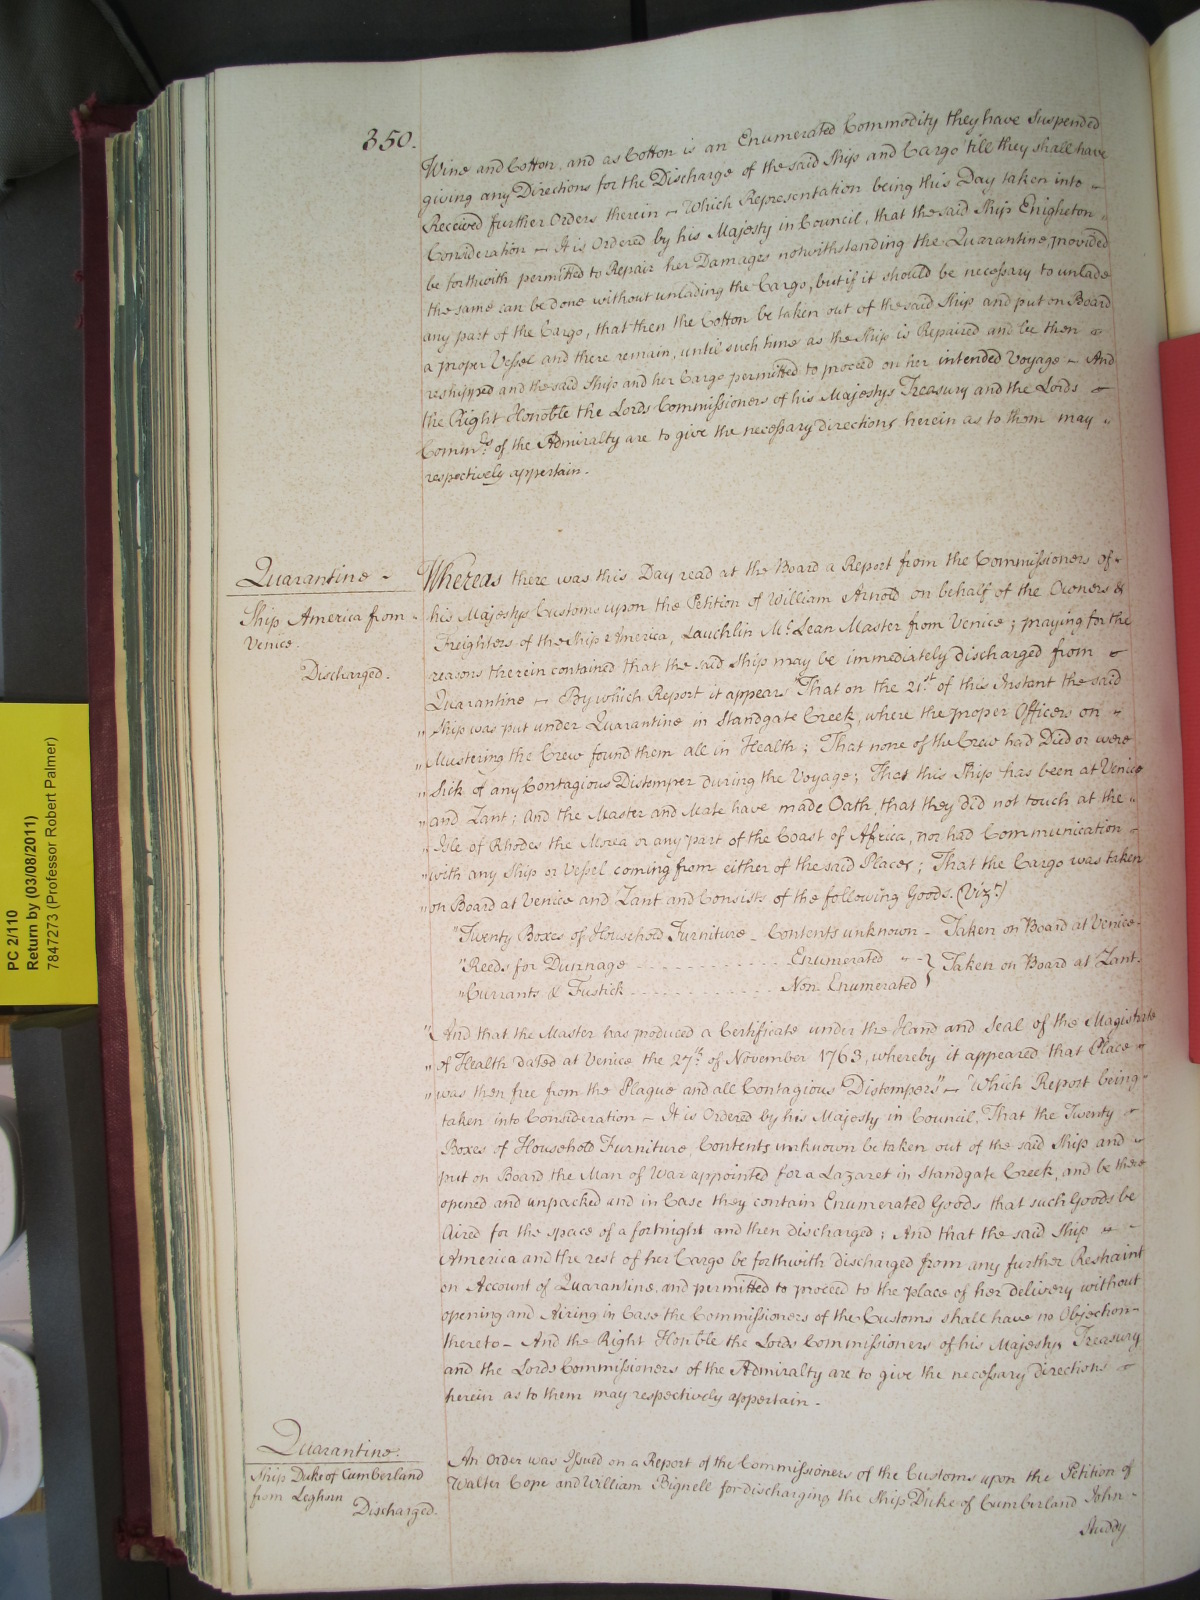 350.
Wine and Cotton, and as Cotton is an Enumerated Commodity they have Suspended
giving any Directions for the Discharge of the said Ship and Cargo 'till they shall have
Received further Orders therein – Which Representation being this Day taken into
Consideration – It is Ordered by his Majesty in Council, that the said Ship
be forthwith permitted to Repair her Damages notwithstanding the Quarantine, provided
the same can be done without unlading the Cargo, but if it should be necessary to unlade
any part of the Cargo, that then the Cotton be taken out of the said Ship and put on Board
a proper Vessel and there remain, until such time as the Ship is Repaired and be then
reshipped and the said Ship and her Cargo permitted to proceed on her intended Voyage – And
the Right Honoble the Lords Commissioners of his Majestys Treasury and the Lords
Commrs. of the Admiralty are to give the necessary directions herein as to them may
respectively appertain.
Quarantine –
Ship America from
Venice.
Discharged.
Whereas there was this Day read at the Board a Report from the Commissioners of
his Majestys Customs upon the Petition of William Arnold on behalf of the Owners &
Freighters of the Ship America, Lauchlin McLean Master from Venice; praying for the
reasons therein contained that the said Ship may be immediately discharged from
Quarantine – By which Report it appears "That on the 21st of this Instant the said
" Ship was put under Quarantine in Standgate Creek, where the proper Officers on
" Mustering the Crew found them all in Health; That none of the Crew had Died or were
" Sick of any Contagious Distemper during the Voyage; That this Ship has been at Venice
" and Zant; And the Master and Mate have made Oath, that they did not touch at the
" Isle of Rhodes the Morea or any part of the Coast of Africa, nor had Communication
" with any Ship or Vessel coming from either of the said Places; That the Cargo was taken
" on Board at Venice and Zant and Consists of the following Goods. (Vizt.)
"Twenty Boxes of Household Furniture – Contents unknown – Taken on Board at Venice –
"Reeds for Dunnage ............ Enumerated } Taken on Board at Zant.
"Currants & Fustick ............ Non Enumerated }
" And that the Master has produced a Certificate under the Hand and Seal of the Magistrate
" of Health dated at Venice the 27th of November 1763, whereby it appeared that Place
" was then free from the Plague and all Contagious Distempers" – Which Report being
taken into Consideration – It is Ordered by his Majesty in Council, That the Twenty
Boxes of Household Furniture, Contents unknown be taken out of the said Ship and
put on Board the Man of War appointed for a Lazaret in Standgate Creek, and be there
opened and unpacked and in Case they contain Enumerated Goods that such Goods be
Aired for the space of a fortnight and then discharged; And that the said Ship
America and the rest of her Cargo be forthwith discharged from any further Restraint
on Account of Quarantine, and permitted to proceed to the place of her delivery without
opening and Airing in Case the Commissioners of the Customs shall have no Objection
thereto – And the Right Honble the Lords Commissioners of his Majestys Treasury
and the Lords Commissioners of the Admiralty are to give the necessary directions
herein as to them may respectively appertain.
Quarantine.
Ship Duke of Cumberland
from Leghorn
Discharged.
An Order was Issued on a Report of the Commissioners of the Customs upon the Petition of
Walter Cope and William Bignell for discharging the Ship Duke of Cumberland John
Studdy
PC 2/110
Return by (03/08/2011)
7847273 (Professor Robert Palmer)